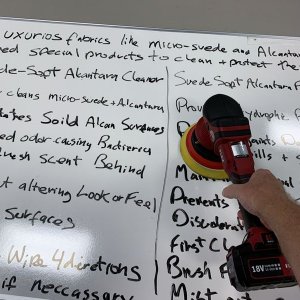 uxurios fabrics like micro-suede and Alcantar
ed special products to clean + protect the
de-Sopt Alcantara Cleaner
cleans micro-suede + Alcantara
Soild Alcan Surfaces
ed odor causing Bactierra
resh scent Behind
t altering Look or Feel
Surfaces
Wipe 4 directions
if neccassary
Suede Sopt Alcantara P
Prov
Prevents
Discoloration
First Cle
Brush
Mist
18V